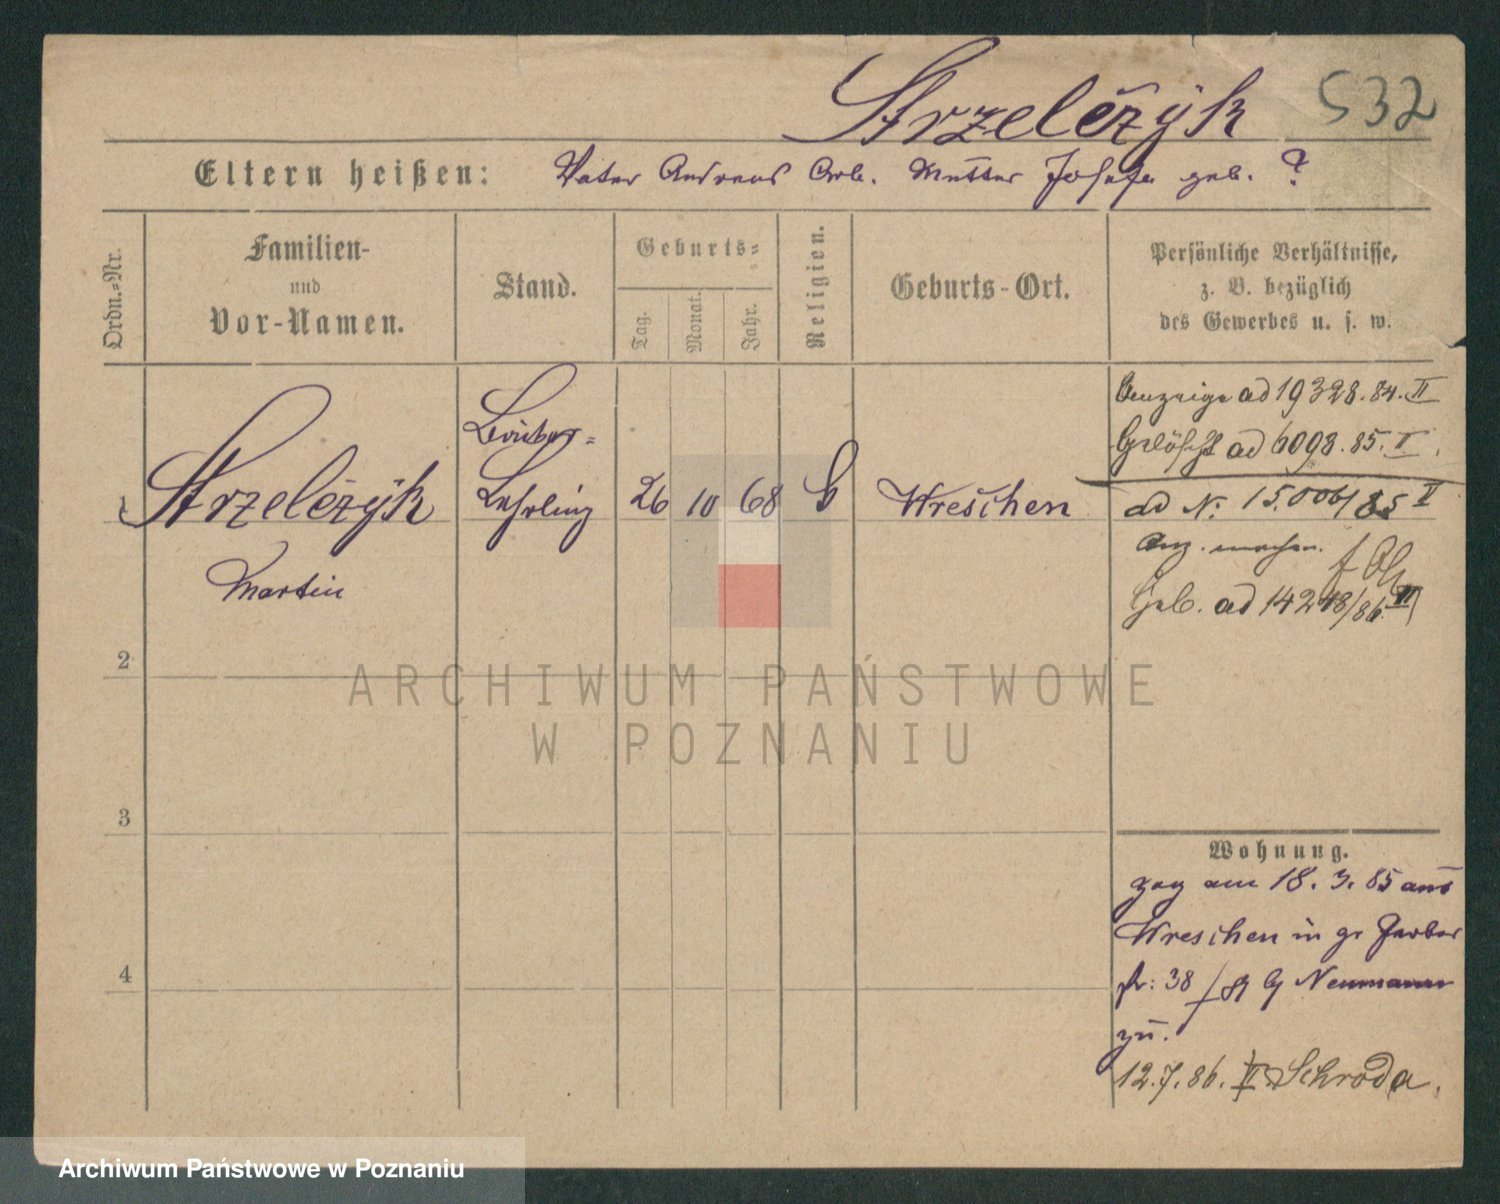 Strzelczyk 532
Eltern heißen: Vater Andreas Arb. Mutter Josefa geb. ?
Ordn.=Nr.
Familien-
und
Vor-Namen.
Stand.
Geburts=
Tag.
Monat.
Jahr.
Religion.
Geburts-Ort.
Persönliche Verhältnisse,
z. B. bezüglich
des Gewerbes u. s. w.
1 Strzelczyk
Martin
Lehrling
26 10 68
Wreschen
Anzeige ad 19328.84.II
Gelöscht ad 6098.85.II.
ad N: 15.006/85 II
Anz. machen.
ad 14248/86 II
2
3
4
Wohnung.
zog am 18.3.85 aus
Wreschen in gr Gerber
str: 38 Neumann
zu.
12.7.86. Schroda.
ARCHIWUM PAŃSTWOWE
W POZNANIU
Archiwum Państwowe w Poznaniu